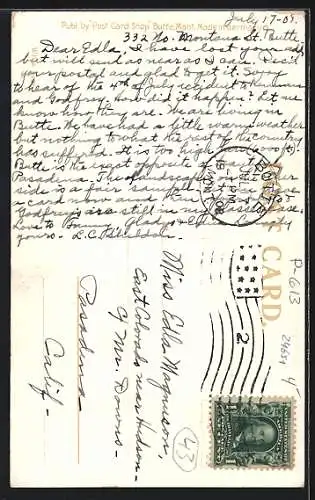 Publ by "Post Card Shop" Butte, Mont. Made in Germany
July 17-08.
332 No. Montana St. Butte
Dear Edla, I have lost your add
but will send as near as I can. Rec'd
your postal and glad to get it. Sorry
to hear of the 4th of July accident to
and Godfrey. How did it happen? Let me
know how they are. We are living in
Butte. We have had a little warm weather
but nothing to what the rest of the country
has suffered. It is too high
Butte is the exact opposite
Pasadena. The landscape on other
side is a fair sample
a card now and
Godfrey's are still in my
Love to Fanny Gladys &
yours - L.C. Sheldon
BUTTE
JUL
18
-PM
1908
MONT.
POST CARD.
2
P-613
24651
4
43
Miss Edla Magnuson,
East Colorado near Hudson-
c/o Mrs. Downs-
Pasadena-
Calif-
1 1